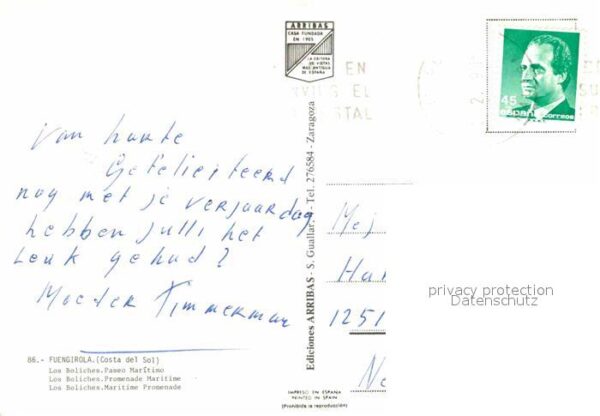 ARRIBAS
CASA FUNDADA
EN 1905
LA EDITORA
DE VISTAS
MAS ANTIGUA
DE ESPAÑA
EN
EL
45
ESPAÑA correos
Van harte
Gefeliciteerd
nog met je verjaardag
hebben julli het
Leuk gehad?
Moeder Timmerman
86.- FUENGIROLA.(Costa del Sol)
Los Boliches.Paseo Marítimo
Los Boliches.Promenade Maritime
Los Boliches.Maritime Promenade
Ediciones ARRIBAS - S. Guallar, - Tel. 276584 - Zaragoza
IMPRESO EN ESPAÑA
PRINTED IN SPAIN
(Prohibida la reproducción)
Mej
Har
1251
Ne
privacy protection
Datenschutz